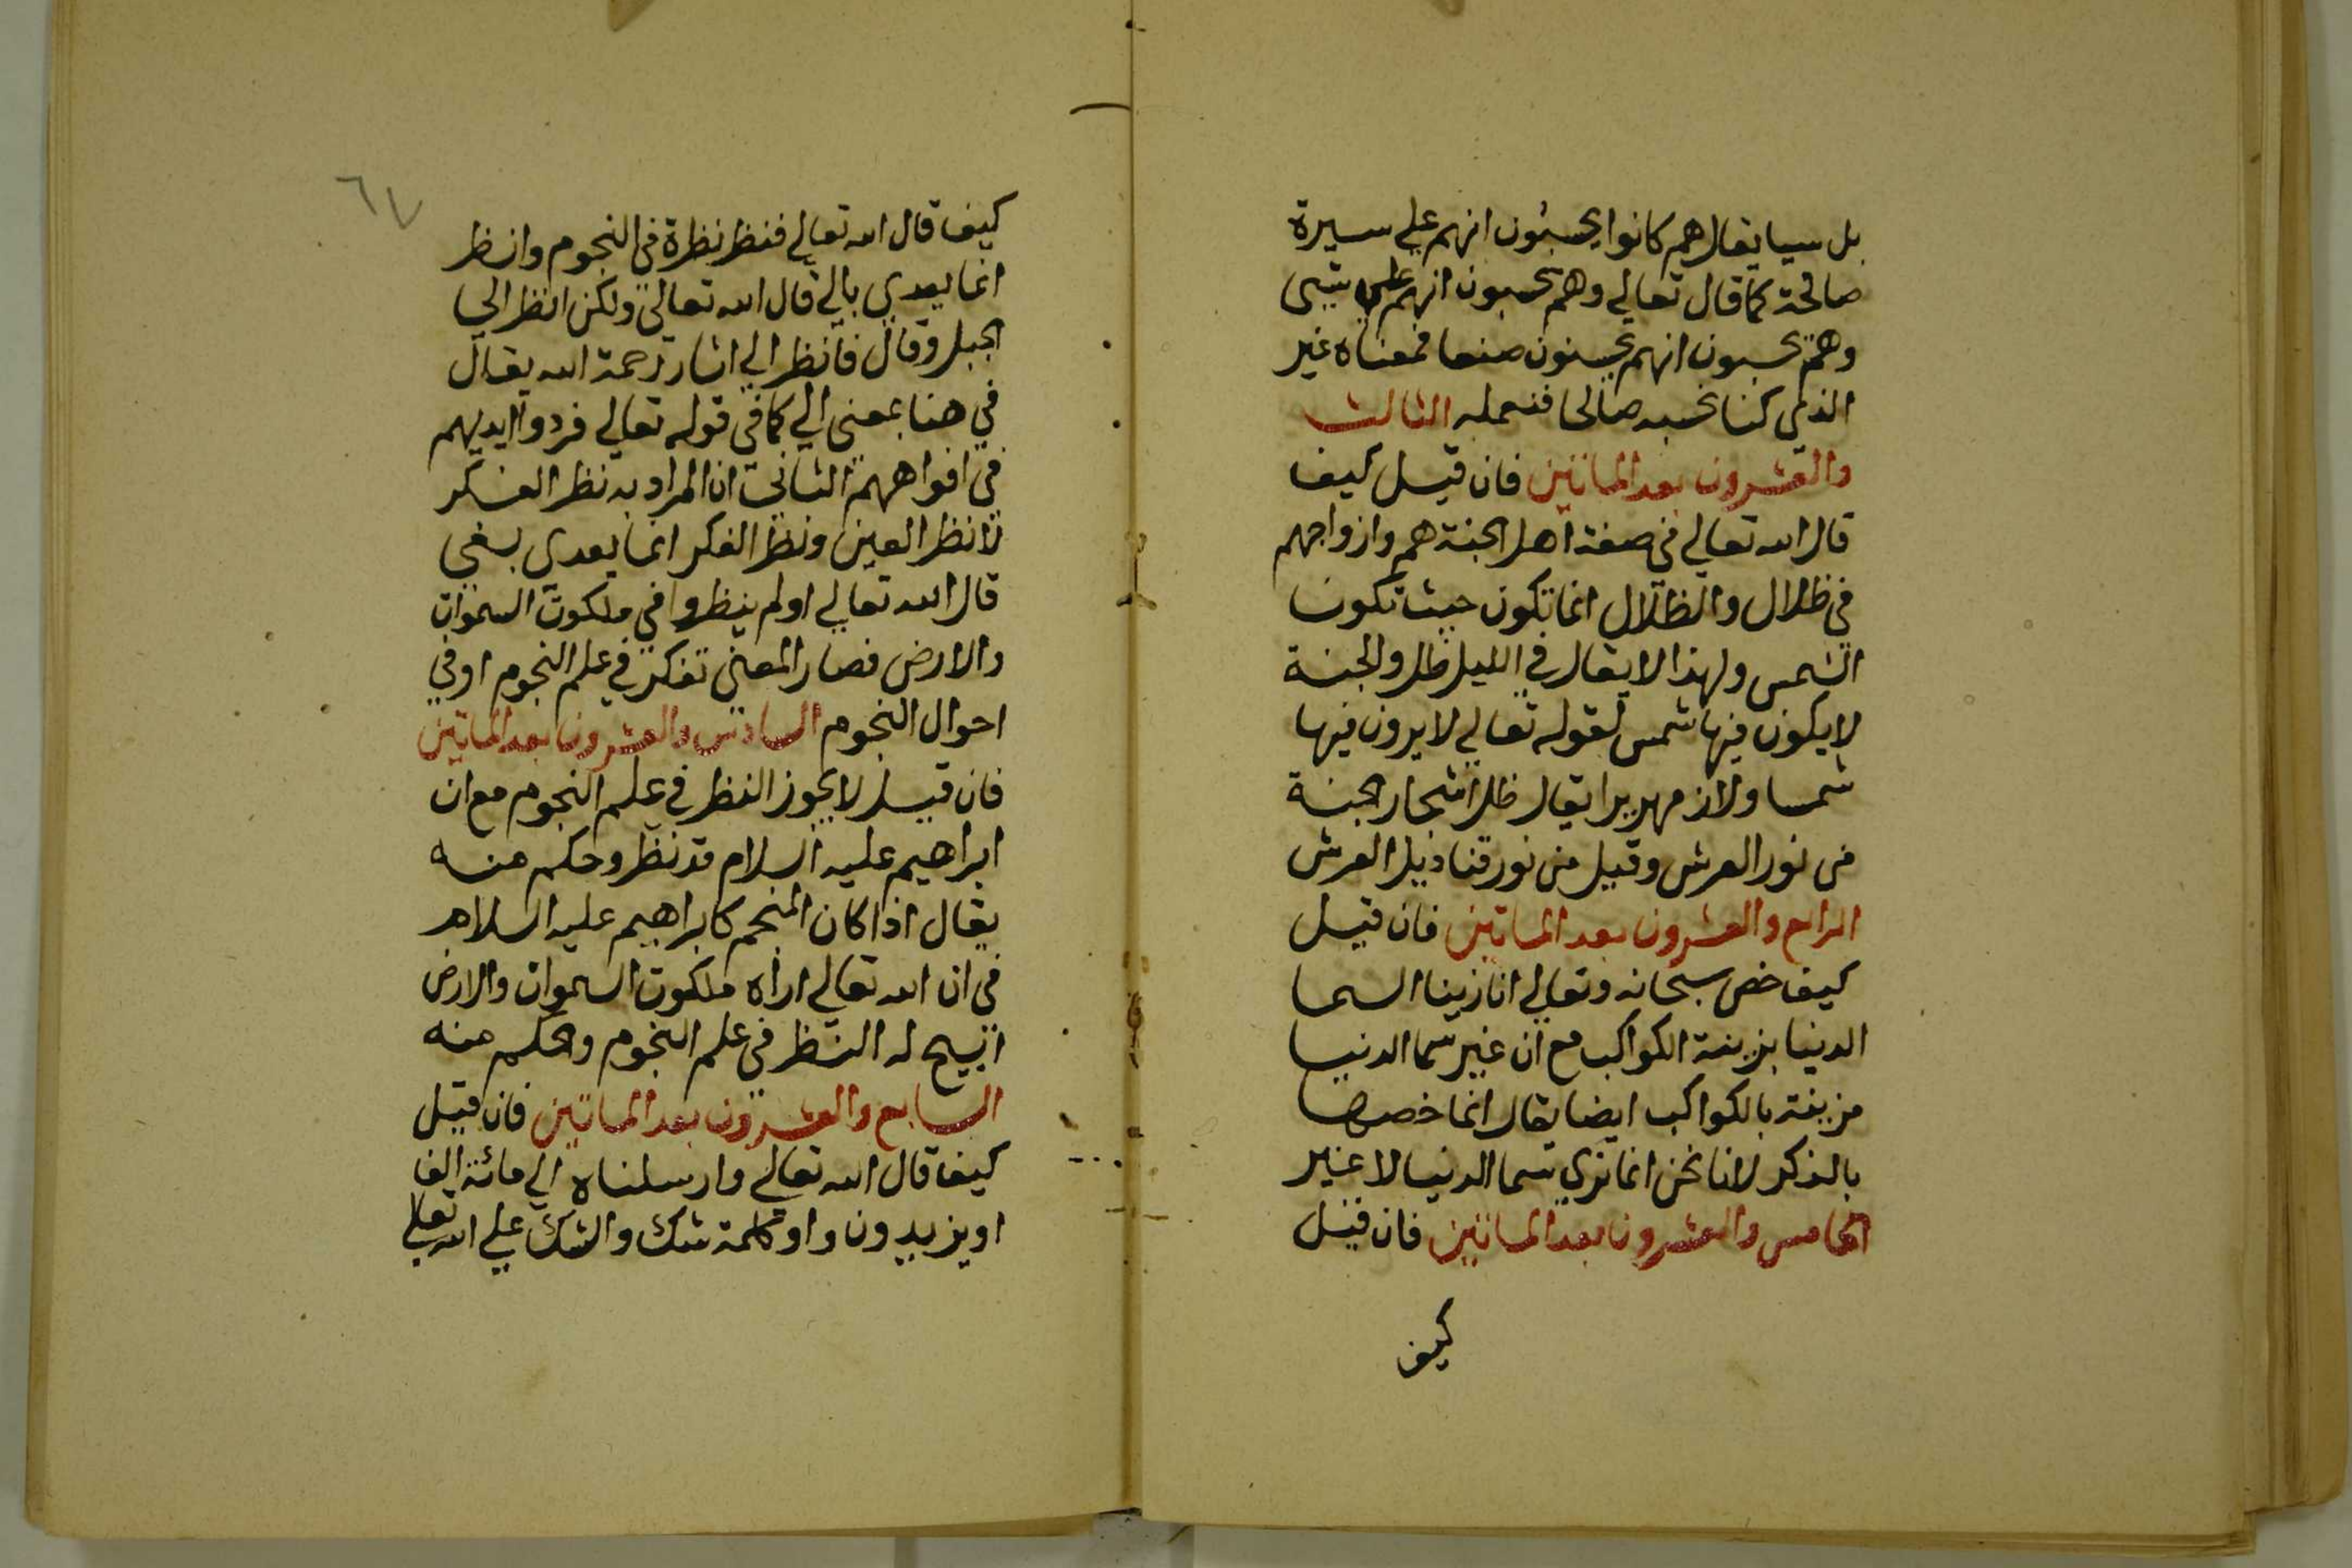 بل سيا يقال هم كانوا يحسبون انهم علي سيرة
صالحة كما قال تعالي وهم يحسبون انهم علي شيي
وهم يحسبون انهم يحسنون صنعا فمعناه غير
الذي كنا نحسبه صالحا فنعمله الثالث
والعشرون بعد الماتين فان قيل كيف
قال الله تعالي في صفة اهل الجنة هم وازواجهم
في ظلال والظلال انما تكون حيث تكون
الشمس ولهذا لا يقال في الليل ظل والجنة
لا يكون فيها شمس لقوله تعالي لا يرون فيها
شمسا ولا زمهريرا يقال ظل اشجار الجنة
من نور العرش وقيل من نور قناديل العرش
الرابع والعشرون بعد الماتين فان قيل
كيف خص سبحانه وتعالي انا زينا السما
الدنيا بزينة الكواكب مع ان غير سما الدنيا
مزينة بالكواكب ايضا يقال انما خصها
بالذكر لانا نحن انما نري سما الدنيا لا غير
الخامس والعشرون بعد الماتين فان قيل
كيف
٦٧
كيف قال الله تعالي فنظر نظرة في النجوم وانظر
انما يعدي بالي قال الله تعالي ولكن انظر الي
الجبل وقال فانظر الي اثار رحمة الله يقال
في هنا بمعني الي كما في قوله تعالي فردوا ايديهم
في افواههم الثاني ان المراد به نظر الفكر
لا نظر العين ونظر الفكر انما يعدي بفي
قال الله تعالي اولم ينظروا في ملكوت السموات
والارض فصار المعني تفكر في علم النجوم او في
احوال النجوم السادس والعشرون بعد الماتين
فان قيل لا يجوز النظر في علم النجوم مع ان
ابراهيم عليه السلام قد نظر وحكم منه
يقال اذا كان المنجم كابراهيم عليه السلام
في ان الله تعالي اراه ملكوت السموات والارض
ابيح له النظر في علم النجوم والحكم منه
السابع والعشرون بعد الماتين فان قيل
كيف قال الله تعالي وارسلناه الي مائة الف
او يزيدون واو كلمة شك والشك علي الله تعالي